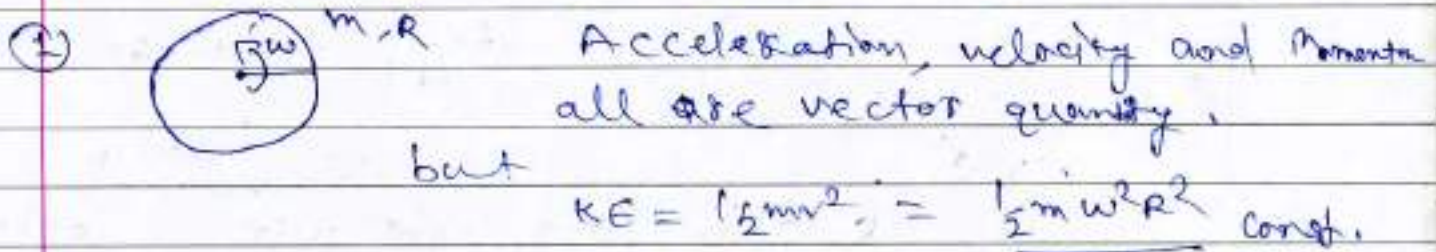 ① ω m, R Acceleration, velocity and Momentum
all are vector quantity.
but
KE = 1/2mv². = 1/2 mω²R² const.